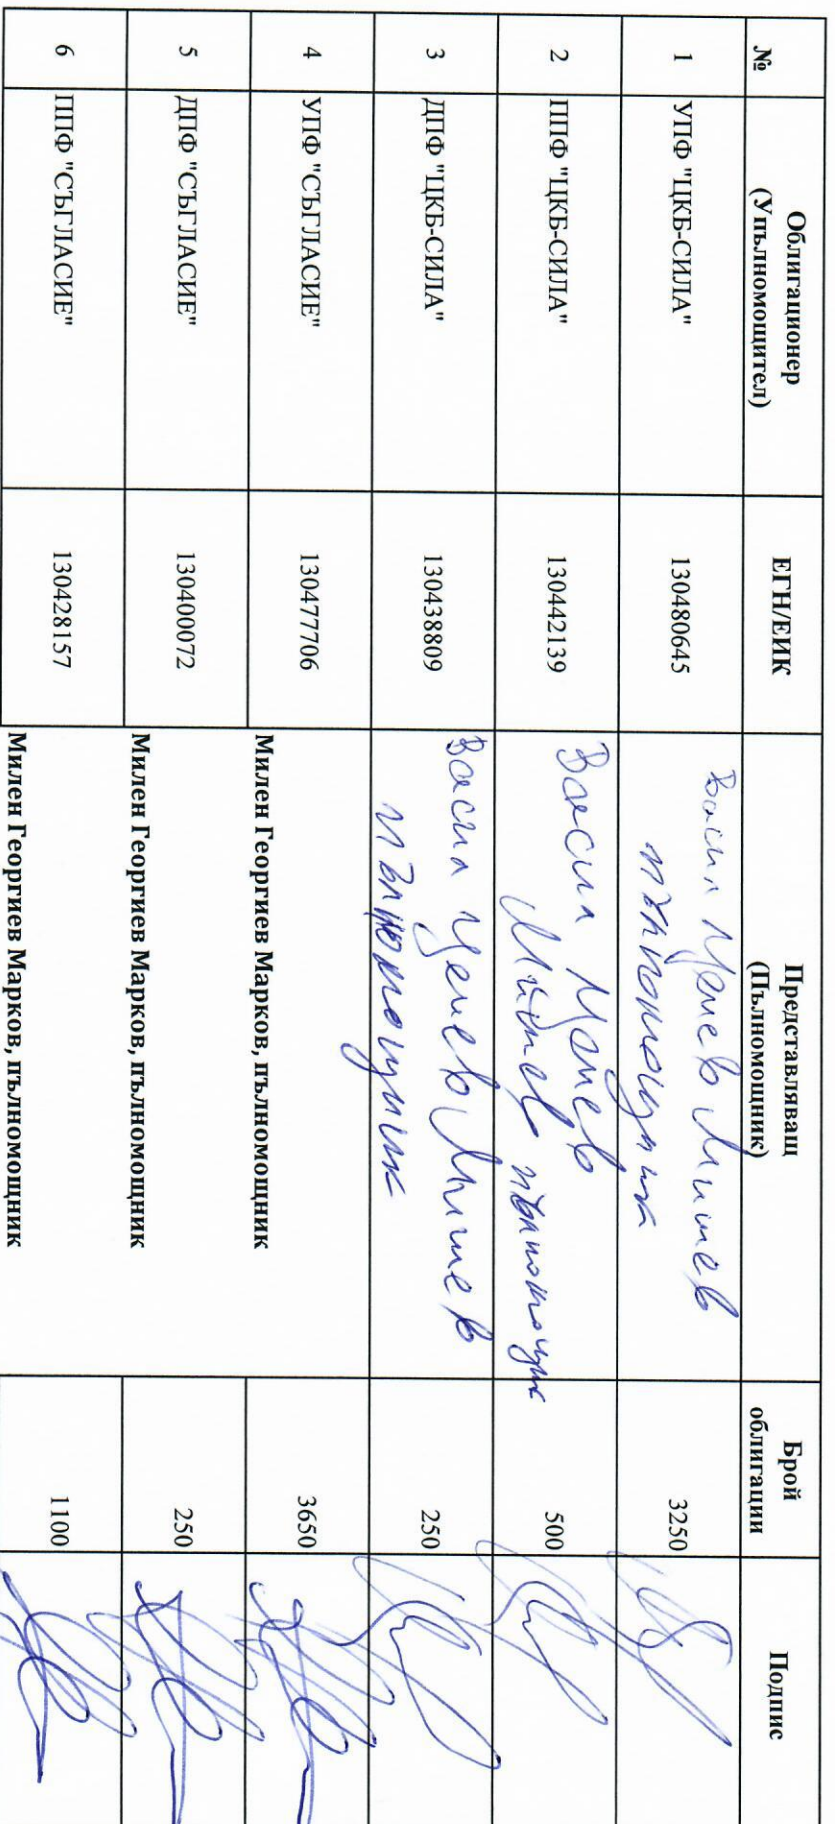 № Облигационер (Упълномощител) ЕГН/ЕИК Представляващ (Пълномощник) Брой облигации Подпис
1 УПФ "ЦКБ-СИЛА" 130480645 Васил Ценев Митев пълномощник 3250
2 ППФ "ЦКБ-СИЛА" 130442139 Васил Ценев Митев пълномощник 500
3 ДПФ "ЦКБ-СИЛА" 130438809 Васил Ценев Митев пълномощник 250
4 УПФ "СЪГЛАСИЕ" 130477706 Милен Георгиев Марков, пълномощник 3650
5 ДПФ "СЪГЛАСИЕ" 130400072 Милен Георгиев Марков, пълномощник 250
6 ППФ "СЪГЛАСИЕ" 130428157 Милен Георгиев Марков, пълномощник 1100